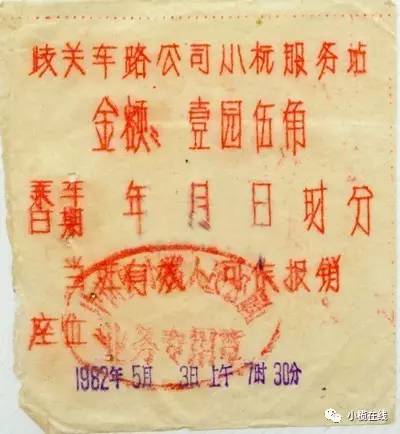 歧关车路公司小杬服务站
金额：壹园伍角
乘车日期 年 月 日 时 分
当班有效 可作报销
座位
业务专用章
1982年 5月 3日上午 7时 30分
小榄在线